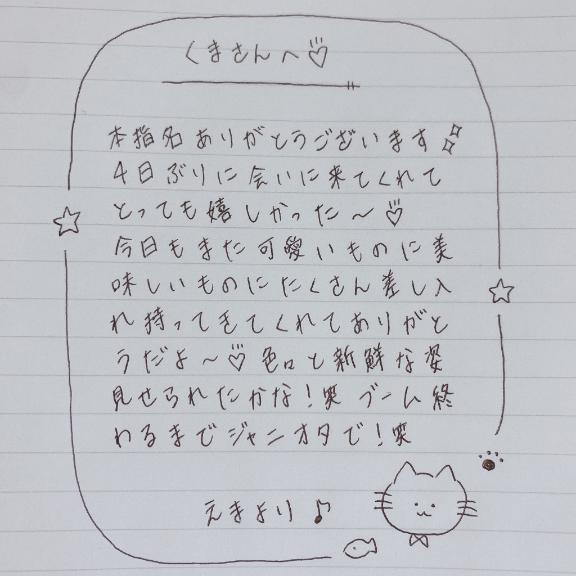 くまさんへ♡
本指名ありがとうございます
4日ぶりに会いに来てくれて
とっても嬉しかった〜♡
今日もまた可愛いものに美
味しいものにたくさん差し入
れ持ってきてくれてありがと
うだよ〜♡色々と新鮮な姿
見せられたかな!笑 ブーム終
わるまでジャニオタで!笑
えまより♪